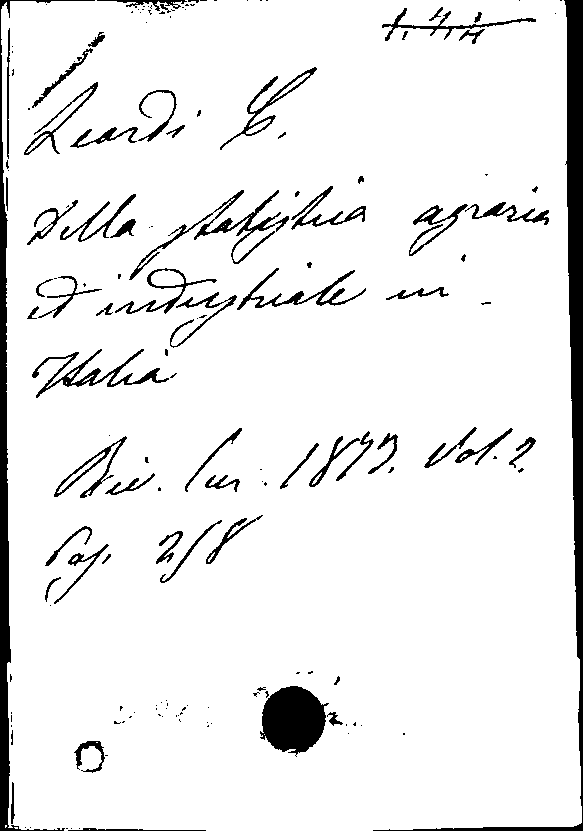 1.4.4
Leardi C.
Della statistica agraria
ed industriale in
Italia
Riv. Eur. 1873. Vol. 2.
Pag. 258